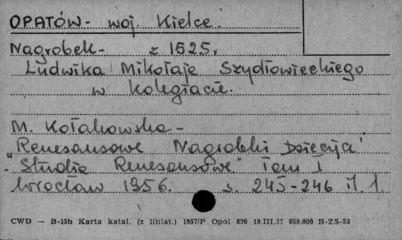 OPATÓW - woj. Kielce.
Nagrobek - z 1525r
Ludwika Mikołaja Szydłowieckiego
w kolegiacie.
M. Kołakowska -
"Renesansowe Nagrobki Dziecięce"
- "Studia Renesansowe" Tom I
Wrocław 1956. s. 243-246 il. 1.
CWD — B-15b Karta katal. (z liniat.) 1957/P Opol 890 19.III.57 950.000 B-ZS-58